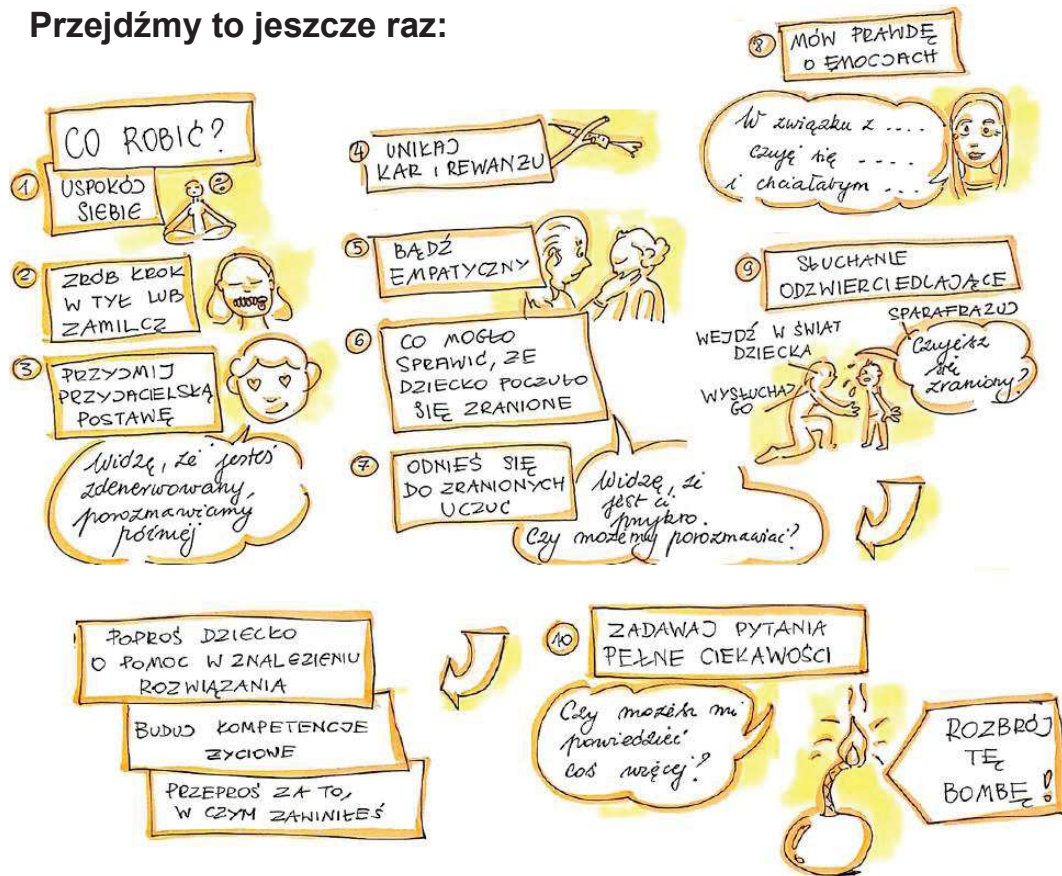 Przejdźmy to jeszcze raz:
CO ROBIĆ?
1
USPOKÓJ
SIEBIE
2
ZRÓB KROK
W TYŁ LUB
ZAMILCZ
3
PRZYJMIJ
PRZYJACIELSKĄ
POSTAWĘ
Widzę, że jesteś
zdenerwowany,
porozmawiamy
później
4
UNIKAJ
KAR I REWANZU
5
BĄDŹ
EMPATYCZNY
6
CO MOGŁO
SPRAWIĆ, ZE
DZIECKO POCZUŁO
SIĘ ZRANIONE
7
ODNIEŚ SIĘ
DO ZRANIONYCH
UCZUĆ
Widzę, że
jest ci
przykro.
Czy możemy porozmawiać?
8
MÓW PRAWDĘ
O EMOCJACH
W związku z ....
czuję się ....
i chciałabym ...
9
SŁUCHANIE
ODZWIERCIEDLAJĄCE
WEJDŹ W ŚWIAT
DZIECKA
WYSŁUCHAJ
GO
SPARAFRAZUJ
Czujesz
się
zraniony?
10
ZADAWAJ PYTANIA
PEŁNE CIEKAWOŚCI
Czy możesz mi
powiedzieć
coś więcej?
ROZBRÓJ
TĘ
BOMBĘ!
POPROŚ DZIECKO
O POMOC W ZNALEZIENIU
ROZWIĄZANIA
BUDUJ KOMPETENCJE
ZYCIOWE
PRZEPROŚ ZA TO,
W CZYM ZAWINIŁEŚ